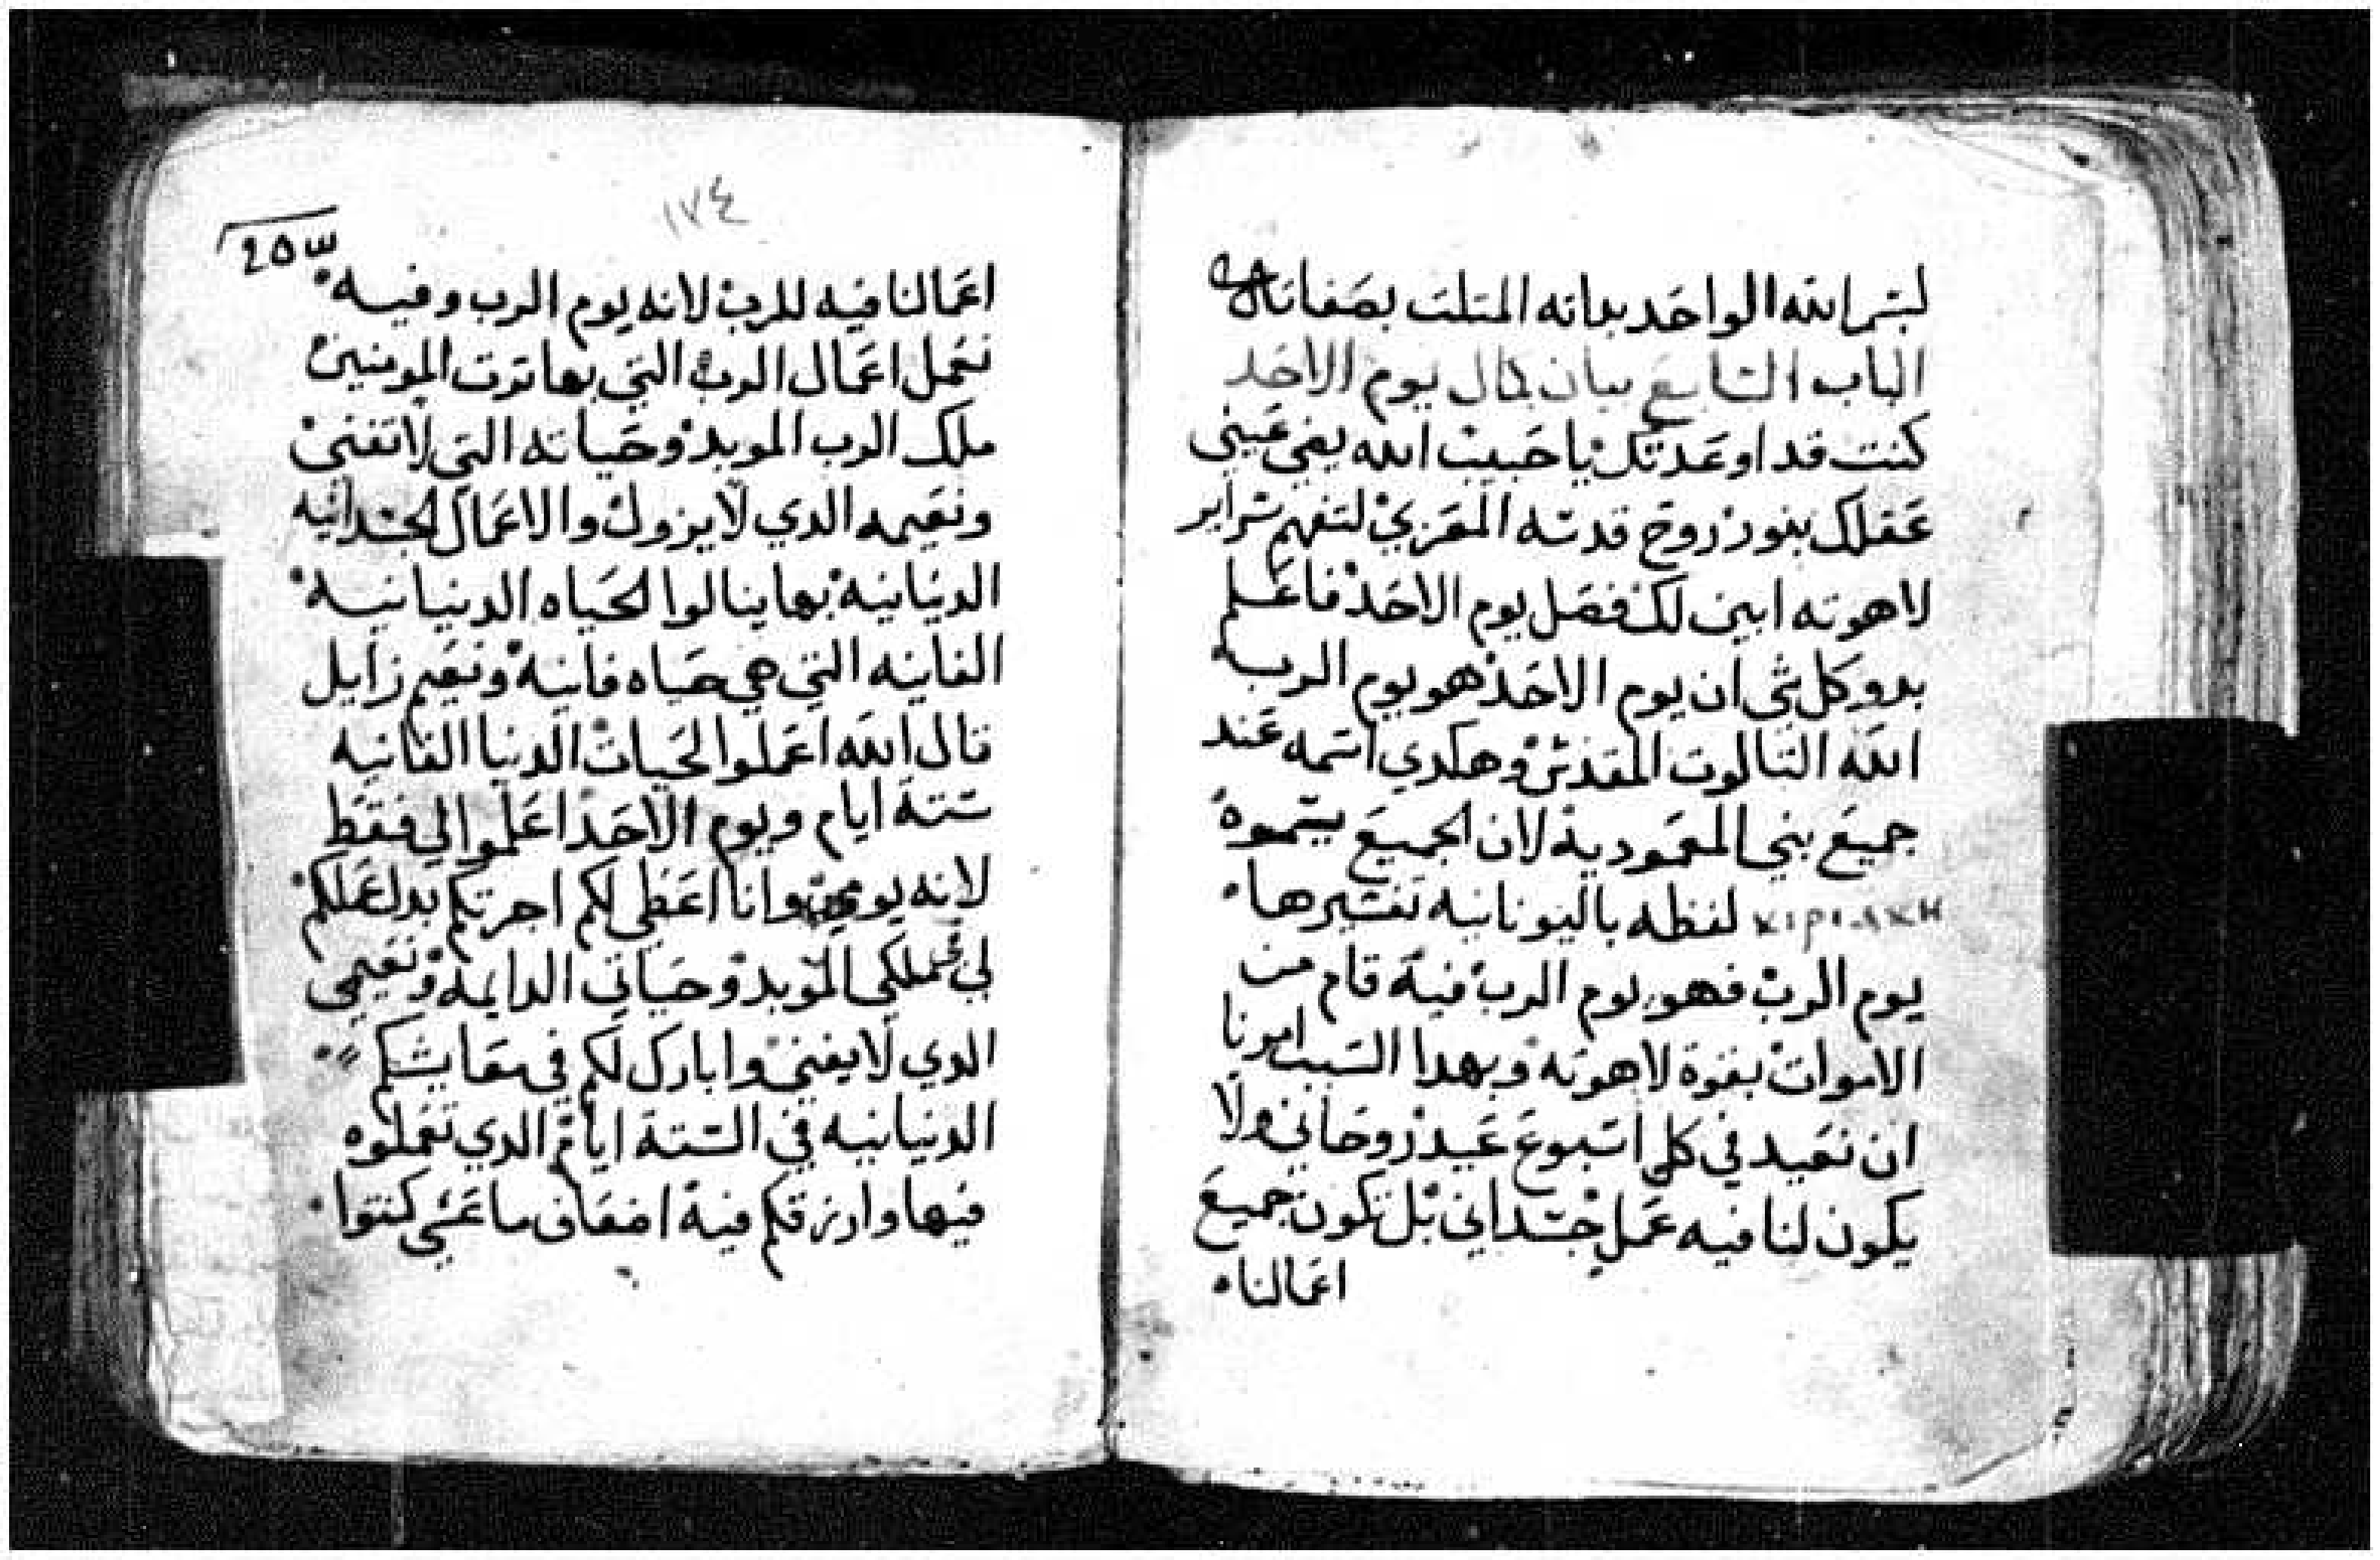 بسم الله الواحد بداته المتلت بصفاته
الباب التاسع بيان كمال يوم الاحد
كنت قد اوعدتك يا حبيب الله يضي عيني
عقلك بنور روح قدسه المعزي لتفهم سراير
لاهوته ابين لك فضل يوم الاحد فاعلم
بدو كل شي ان يوم الاحد هو يوم الرب
الله التالوت المقدس وهكدي اسمه عند
جميع بني المعمودية لان الجميع يسموه
κιριακη لفظه باليونانيه تفسيرها
يوم الرب فهو يوم الرب فيه قام من
الاموات بقوة لاهوته وبهدا السبب امرنا
ان نعيد في كل اسبوع عيد روحاني ولا
يكون لنا فيه عمل جسداني بل تكون جميع
اعمالنا
١٧٤
اعمالنا فيه للرب لانه يوم الرب وفيه
نعمل اعمال الرب التي بها ترت المومنين
ملك الرب الموبد وحياته التي لا تفني
ونعيمه الدي لا يزول والاعمال الجسدانيه
الدنيانيه بها ينالوا الحياه الدنيانيه
الفانيه التي هي حياه فانيه ونعيم زايل
قال الله اعملوا لحيات الدنيا الفانيه
ستة ايام ويوم الاحد اعملوا لي فقط
لانه يومي وانا اعطي لكم اجرتكم بدل عملكم
لي ملكي الموبد وحياتي الدايمه ونعيمي
الدي لا يفني وابارك لكم في معايشكم
الدنيانيه في الستة ايام الدي تعملوه
فيها وارزقكم فيه اضعاف ما عسي كنتوا